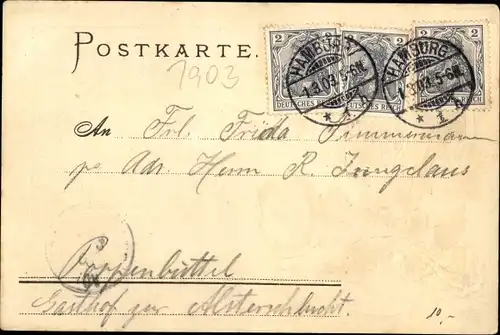 POSTKARTE.
1903
2 2 2
HAMBURG
1.3.03.5-6N.
* 1 *
HAMBURG
1.3.03.5-6N.
* 1 *
DEUTSCHES REICH DEUTSCHES REICH REICH
An Frl. Frida Timmermann
pr Adr. Herrn R. Jungclaus
Poppenbüttel
Gasthof zur Alsterschlucht.
10.-